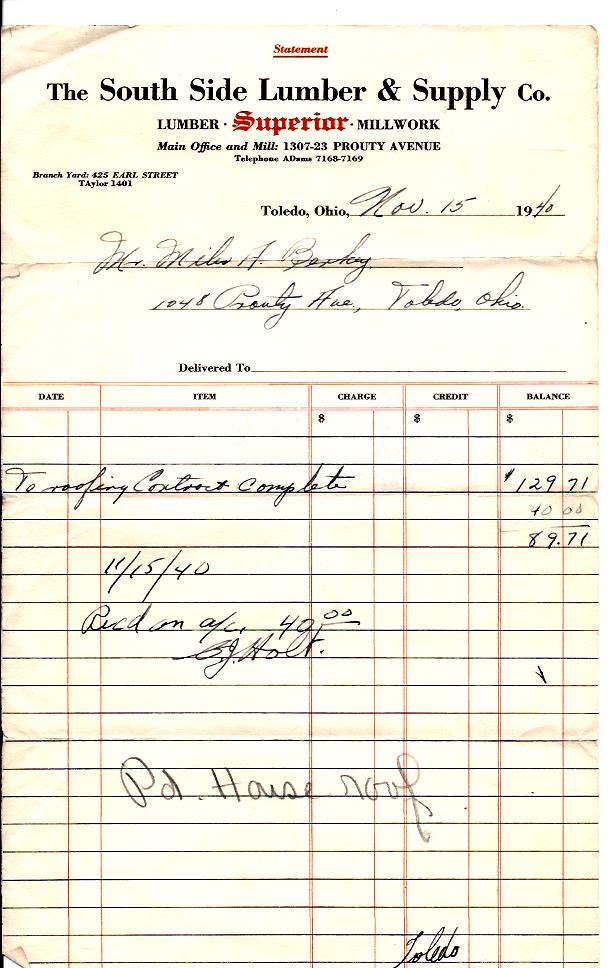 Statement
The South Side Lumber & Supply Co.
LUMBER · Superior · MILLWORK
Main Office and Mill: 1307-23 PROUTY AVENUE
Telephone ADams 7168-7169
Branch Yard: 425 EARL STREET
TAylor 1401
Toledo, Ohio, Nov. 15 1940
Mr. Miles F. Berkey
1048 Prouty Ave., Toledo, Ohio.
Delivered To
DATE ITEM CHARGE CREDIT BALANCE
$ $ $
To roofing Contract complete $129 71
40 00
89.71
11/15/40
Recd on a/c. 40.00
Holt.
Pd. House roof
Toledo